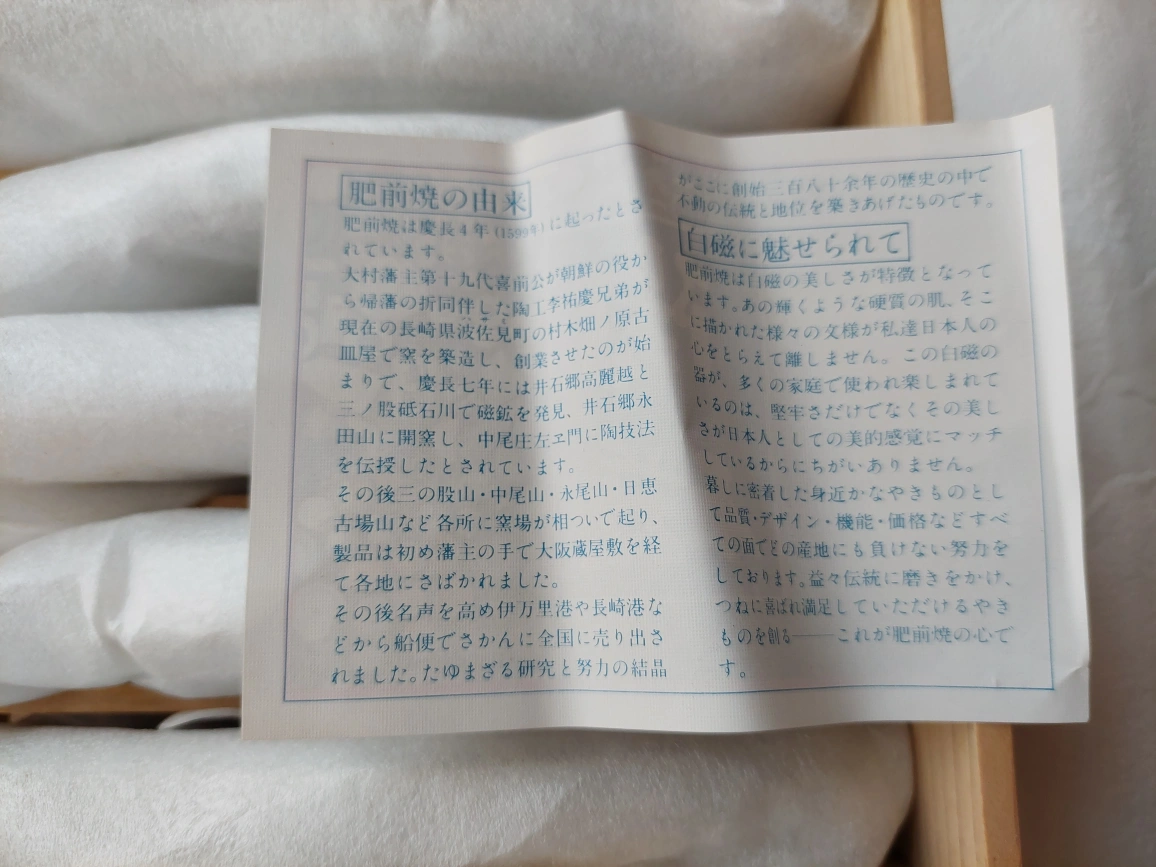 肥前焼の由来
肥前焼は慶長4年(1599年)に起ったとさ
れています。
大村藩主第十九代喜前公が朝鮮の役か
ら帰藩の折同伴した陶工李祐慶兄弟が
現在の長崎県波佐見町の村木畑ノ原古
皿屋で窯を築造し、創業させたのが始
まりで、慶長七年には井石郷高麗越と
三ノ股砥石川で磁鉱を発見、井石郷永
田山に開窯し、中尾庄左ヱ門に陶技法
を伝授したとされています。
その後三の股山・中尾山・永尾山・日恵
古場山など各所に窯場が相ついで起り、
製品は初め藩主の手で大阪蔵屋敷を経
て各地にさばかれました。
その後名声を高め伊万里港や長崎港な
どから船便でさかんに全国に売り出さ
れました。たゆまざる研究と努力の結晶
がここに創始三百八十余年の歴史の中で
不動の伝統と地位を築きあげたものです。
白磁に魅せられて
肥前焼は白磁の美しさが特徴となって
います。あの輝くような硬質の肌、そこ
に描かれた様々の文様が私達日本人の
心をとらえて離しません。この白磁の
器が、多くの家庭で使われ楽しまれて
いるのは、堅牢さだけでなくその美し
さが日本人としての美的感覚にマッチ
しているからにちがいありません。
暮しに密着した身近かなやきものとし
て品質・デザイン・機能・価格などすべ
ての面でどの産地にも負けない努力を
しております。益々伝統に磨きをかけ、
つねに喜ばれ満足していただけるやき
ものを創る——これが肥前焼の心で
す。